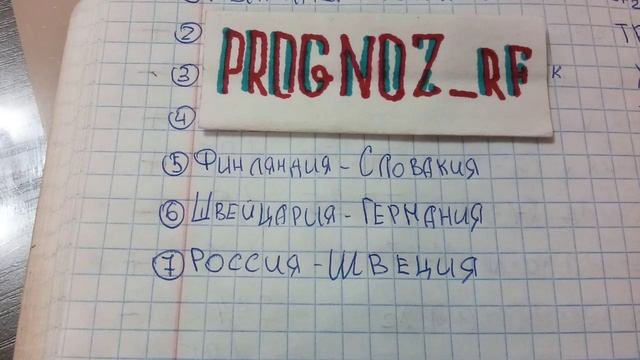 ②
PROGNOZ_RF
③ К
④
⑤ ФИНЛЯНДИЯ - СЛОВАКИЯ
⑥ ШВЕЙЦАРИЯ - ГЕРМАНИЯ
⑦ РОССИЯ - ШВЕЦИЯ